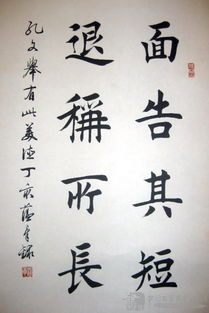 面告其短
退稱所長
孔文舉有此美德丁亥蔭亭錄